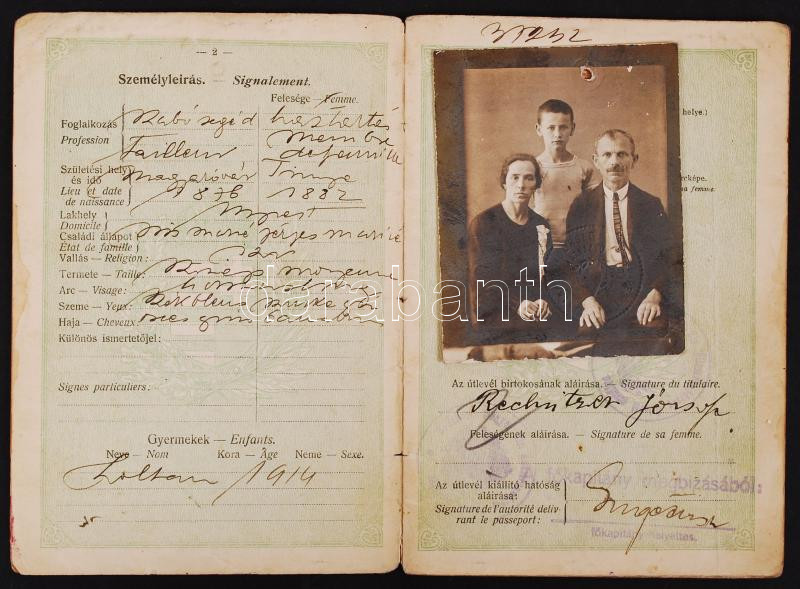 — 2 —
Személyleirás. — Signalement.
Felesége — Femme.
Foglalkozás
Profession
Szabó segéd háztartás
Tailleur membre de famille
Születési hely és idő
Lieu et date de naissance:
Magyaróvár
1876 1882
Lakhely
Domicile
Ujpest
Családi állapot
État de famille
nős marié férjes mariée
Vallás — Religion:
izr
Termete — Taille:
közép moyenne
Arc — Visage:
Szeme — Yeux:
Haja — Cheveux:
Különös ismertetőjel:
Signes particuliers:
Gyermekek — Enfants.
Neve — Nom Kora — Âge Neme — Sexe.
Zoltan 1914
helye.)
rcképe.
sa femme.
darabanth
Az útlevél birtokosának aláirása. — Signature du titulaire.
Rechnitzer József
Feleségének aláirása. — Signature de sa femme.
A főkapitány megbizásából:
Az útlevél kiállitó hatóság aláirása:
Signature de l'autorité délivrant le passeport:
főkapitányhelyettes.